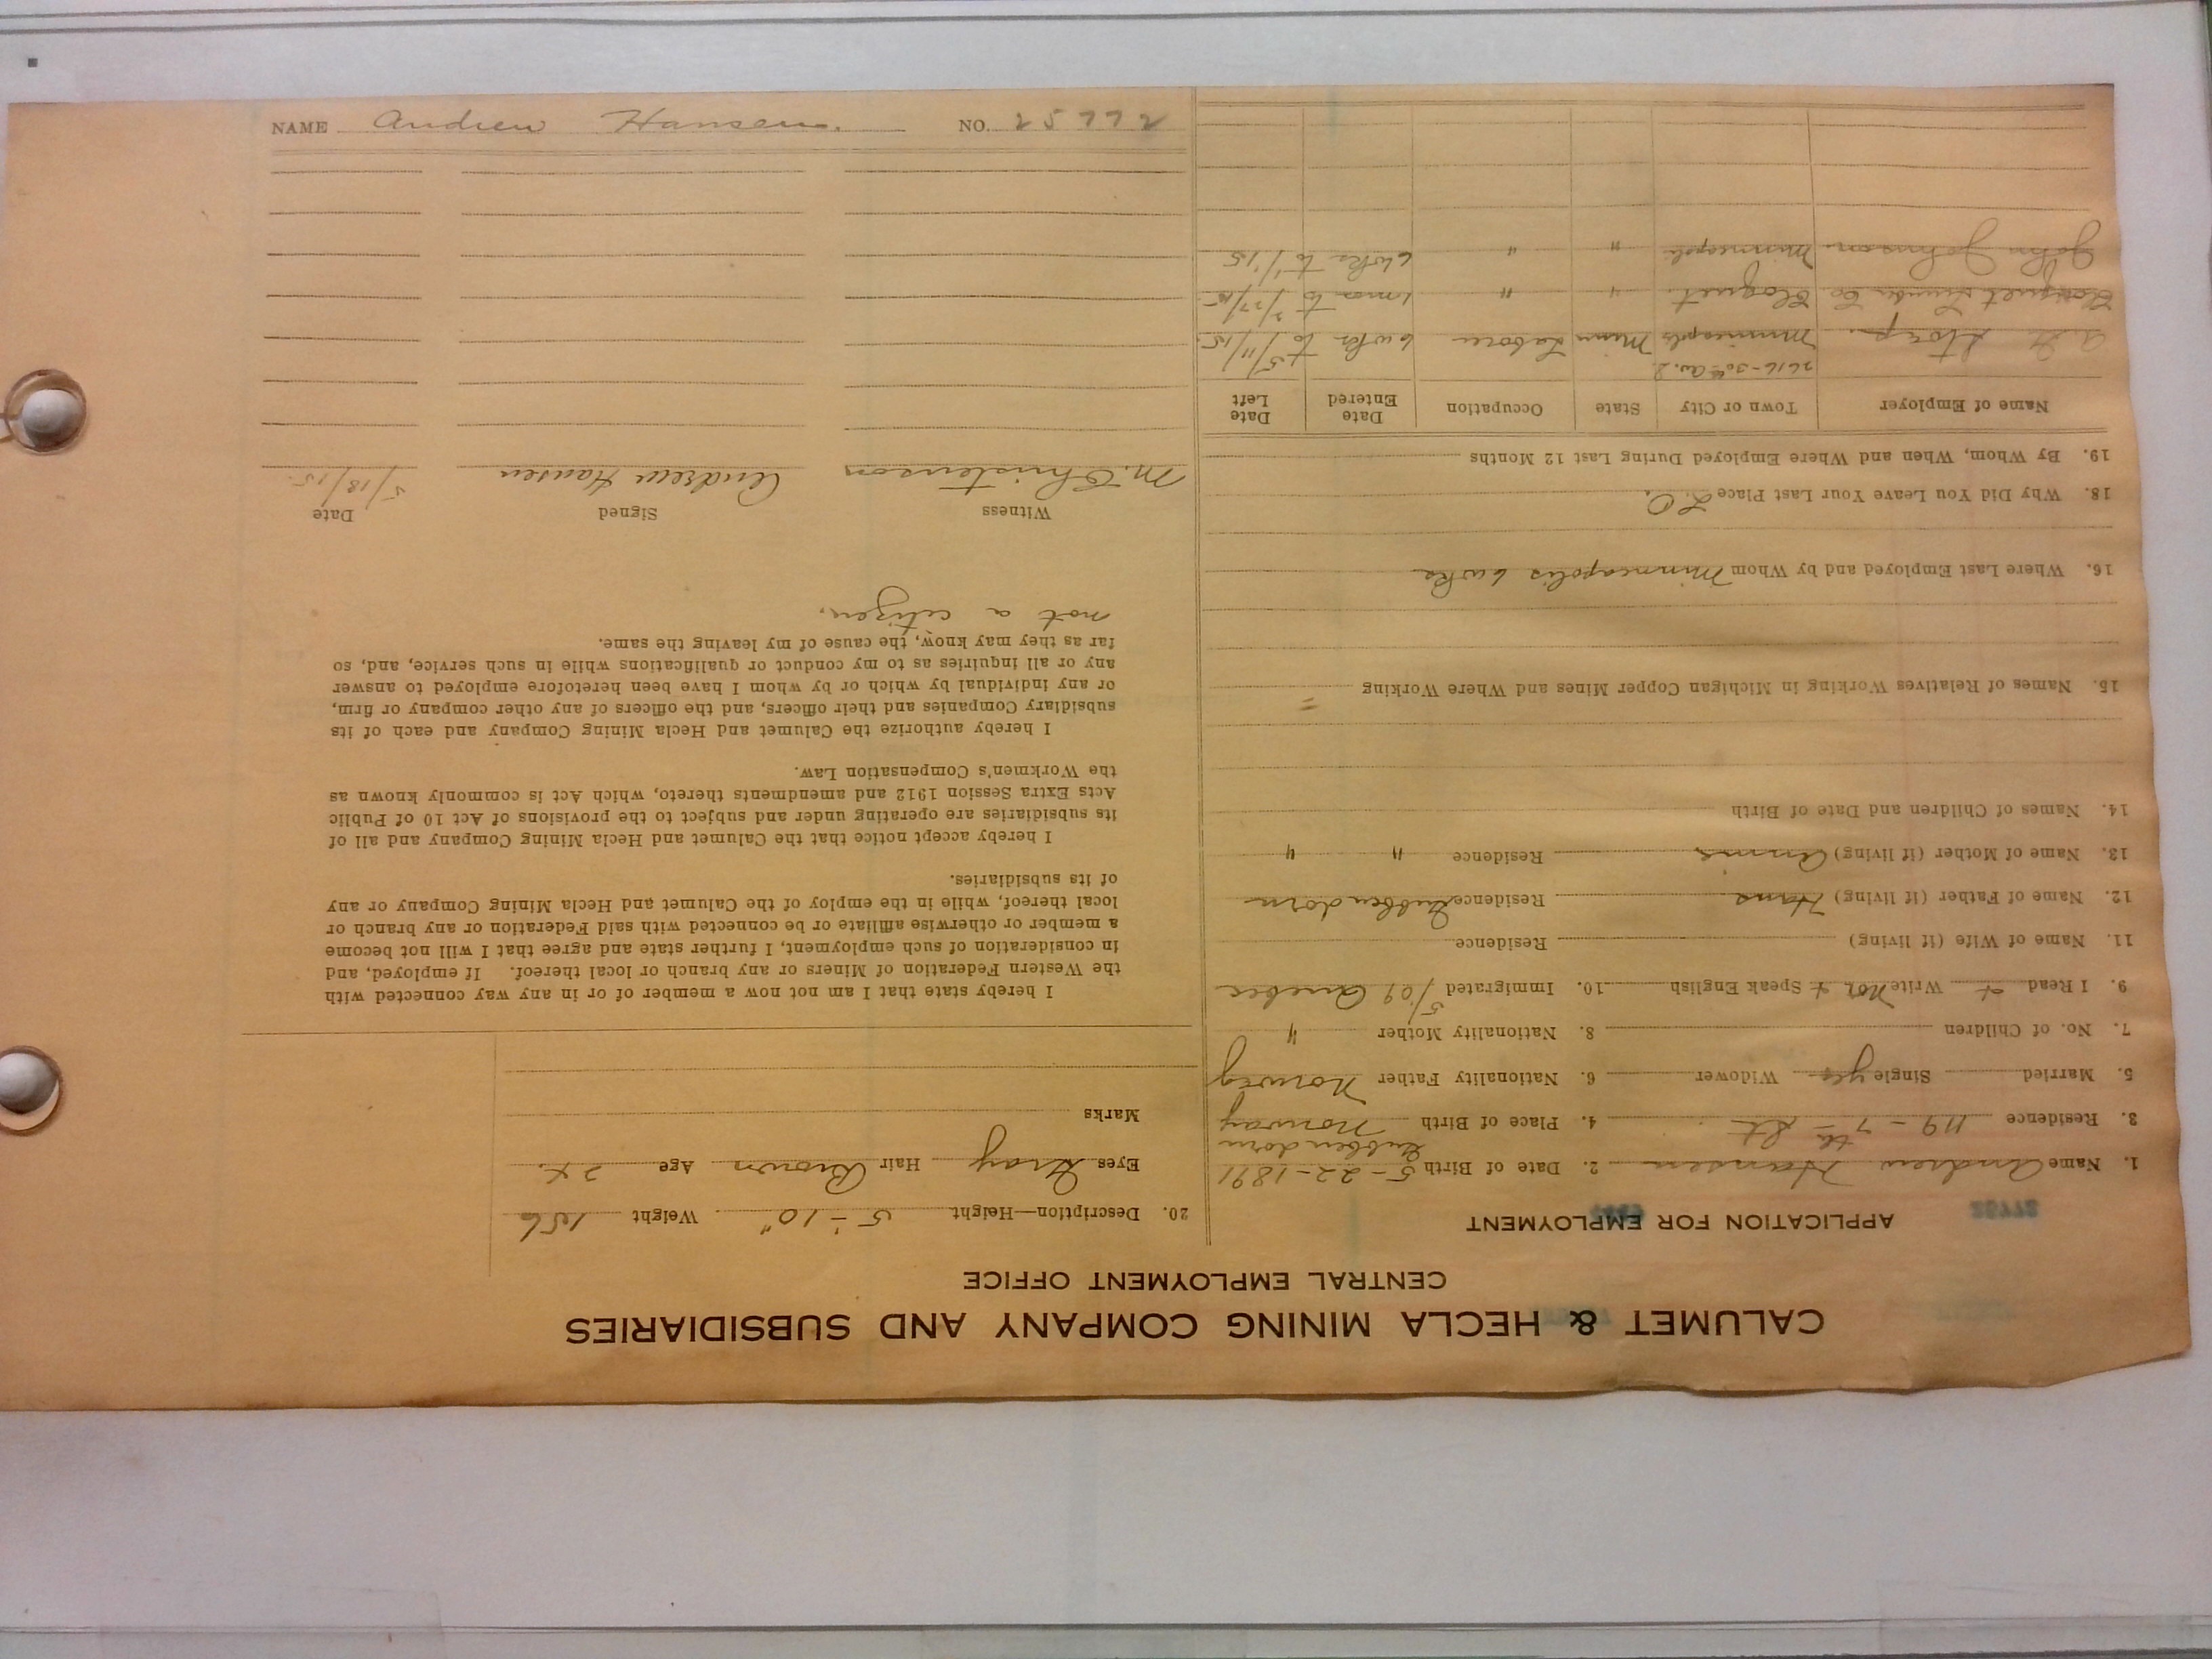 CALUMET & HECLA MINING COMPANY AND SUBSIDIARIES
CENTRAL EMPLOYMENT OFFICE
APPLICATION FOR EMPLOYMENT
1. Name Andrew Hansen 2. Date of Birth 5-22-1891
3. Residence 119 - 7th St. 4. Place of Birth Norway
5. Married Single yes Widower 6. Nationality Father Norweg
7. No. of Children 8. Nationality Mother "
9. I Read + Write Nor + Speak English 10. Immigrated 5/09
11. Name of Wife (if living) Residence
12. Name of Father (if living) Hans Residence
13. Name of Mother (if living) Anna Residence " "
14. Names of Children and Date of Birth
15. Names of Relatives Working in Michigan Copper Mines and Where Working =
16. Where Last Employed and by Whom Minneapolis 6 wks
18. Why Did You Leave Your Last Place L.O.
19. By Whom, When and Where Employed During Last 12 Months
Name of Employer Town or City State Occupation Date Entered Date Left
2616-30th Av. S.
Minneapolis Minn Laborer 6 wks to 5/11/15.
Cloquet Lumber Co Cloquet. " " 1 mos to 3/27/15
John Johnson. Minneapolis " " 6 wks to 1/15
20. Description—Height 5-10" Weight 156
Eyes Gray Hair Brown Age 24.
Marks
I hereby state that I am not now a member of or in any way connected with
the Western Federation of Miners or any branch or local thereof. If employed, and
in consideration of such employment, I further state and agree that I will not become
a member or otherwise affiliate or be connected with said Federation or any branch or
local thereof, while in the employ of the Calumet and Hecla Mining Company or any
of its subsidiaries.
I hereby accept notice that the Calumet and Hecla Mining Company and all of
its subsidiaries are operating under and subject to the provisions of Act 10 of Public
Acts Extra Session 1912 and amendments thereto, which Act is commonly known as
the Workmen's Compensation Law.
I hereby authorize the Calumet and Hecla Mining Company and each of its
subsidiary Companies and their officers, and the officers of any other company or firm,
or any individual by which or by whom I have been heretofore employed to answer
any or all inquiries as to my conduct or qualifications while in such service, and, so
far as they may know, the cause of my leaving the same.
not a citizen.
Witness Signed Date
M. Christenson Andrew Hansen 5/18/15.
NAME Andrew Hansen. NO. 25772